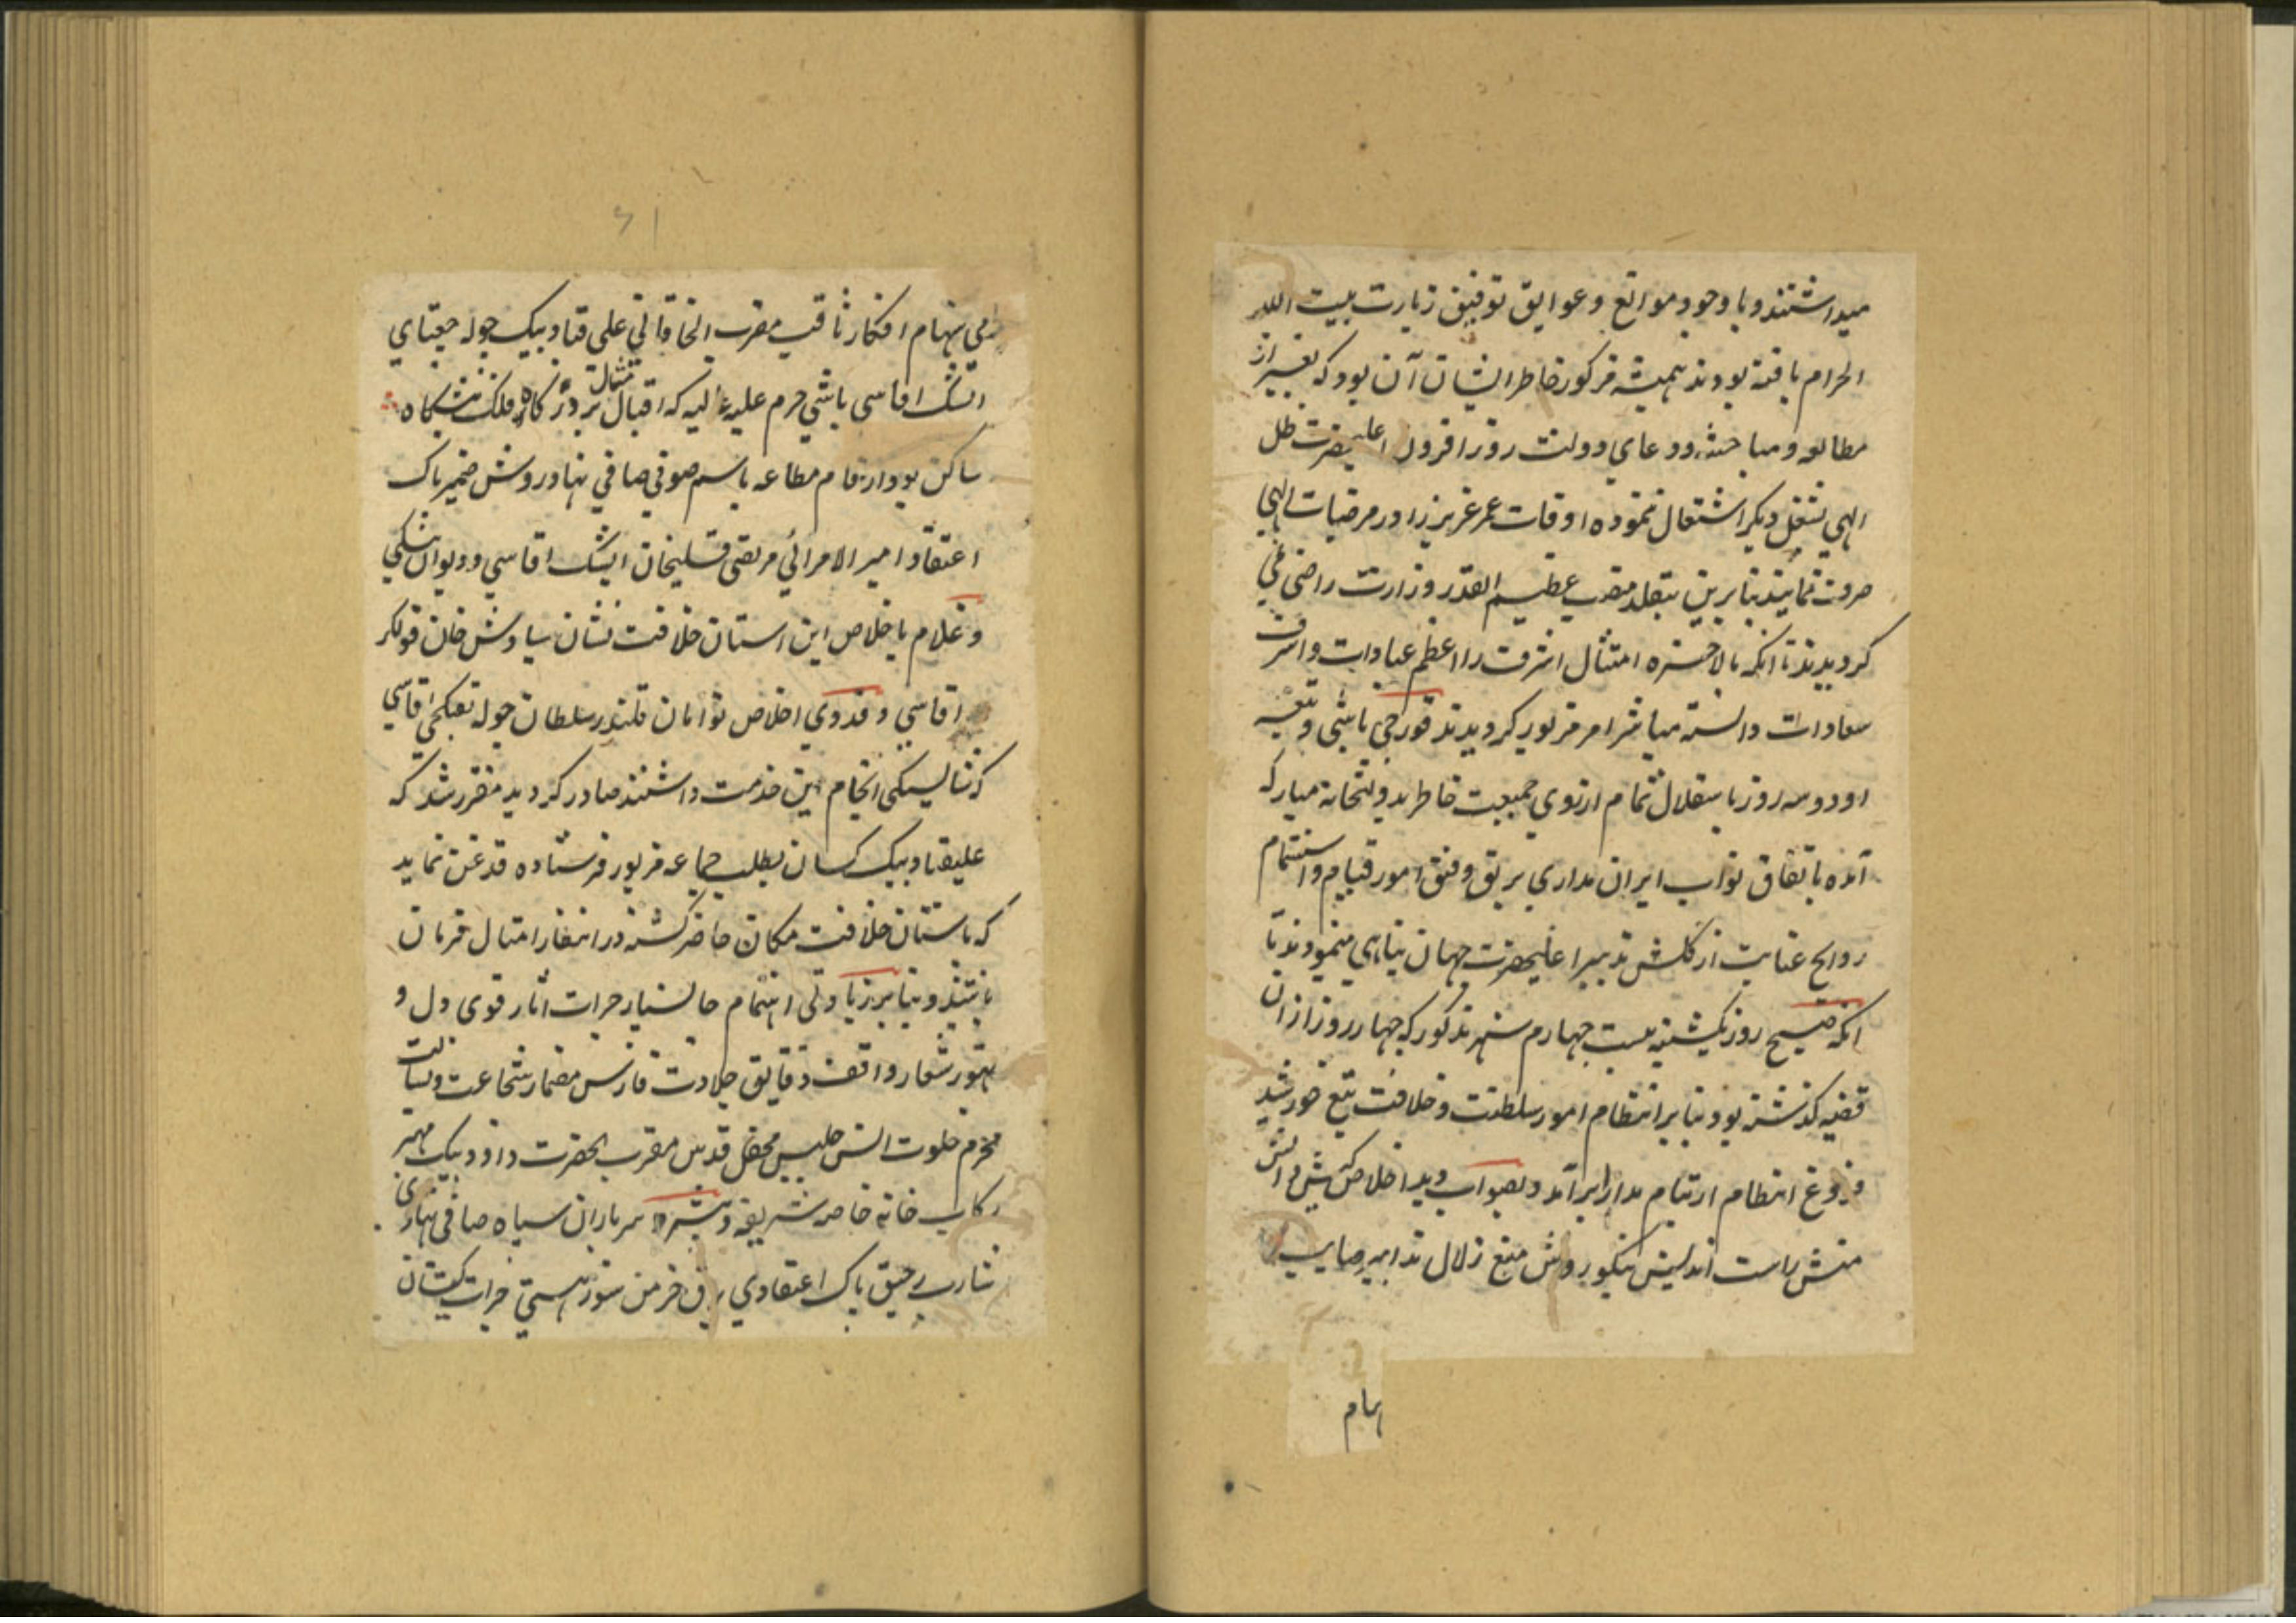 میداشتند و با وجود موانع و عوایق توفیق زیارت بیت الله
الحرام یافته بودند همیشه مرکوز خاطر ایشان آن بود که بغیر از
مطالعه و مباحثه و دعای دولت روز افزون اعلیحضرت ظل
الهی بشغل دیگر اشتغال ننموده اوقات عمر عزیز را در مرضیات الهی
صرف نمایند بنابرین بتقلد منصب عظیم القدر وزارت راضی نمی
گردیدند تا آنکه بالاخره امتثال اشرف را اعظم عبادات و اشرف
سعادات دانسته مباشر امر مزبور گردیدند قورچی باشی و تتمه
او دو سه روز باستقلال تمام از روی جمعیت خاطر بدولتخانه مبارکه
آمده باتفاق نواب ایران مداری برتق و فتق امور قیام و استشمام
روایح عنایت از گلشن تدبیر اعلیحضرت جهان پناهی مینمودند تا
آنکه صبح روز یکشنبه بیست چهارم شهر مذکور که چهار روز از ان
قضیه گذشته بود بنابر انتظام امور سلطنت و خلافت تیغ خورشید
فروغ انتظام از نیام مدارا برآمد و بصواب دید اخلاص کیش دانش
منش راست اندیش نیکو روش منبع زلال تدابیر صایب
بهام
رامی سهام افکار ثاقب مقرب الخاقانی علی قباد بیک جوله جغتای
ایشک اقاسی باشی حرم علیه عالیه که اقبال مثال بر درگاه فلک پیشگاه
ساکن بود ارقام مطاعه باسم صوفی صافی نهاد روشن ضمیر پاک
اعتقاد امیر الامرائی مرتضی قلیخان ایشک اقاسی و دیوان بیکی
و غلام با خلاص این استان خلافت نشان سیاوش خان قوللر
اقاسی و فدوی اخلاص توامان قلندر سلطان جوله تفنگچی اقاسی
که شایستگی انجام این خدمت داشتند صادر گردید مقرر شد که
علیقباد بیک کسان بطلب جماعه مزبور فرستاده قدغن نماید
که باستان خلافت مکان حاضر گشته در انتظار امتثال فرمان
باشند و بنابر زیادتی اهتمام جانسپار جرات اثار قوی دل و
تهور شعار واقف دقایق جلادت فارس مضمار شجاعت و بسالت
محرم خلوت انس جلیس محفل قدس مقرب الحضرت داود بیک مهتر
رکاب خانه خاصه شریفه و سر یاران سیاه صافی نهادی
شارب رحیق پاک اعتقادی برق خرمن سوز هستی جرات کیشان